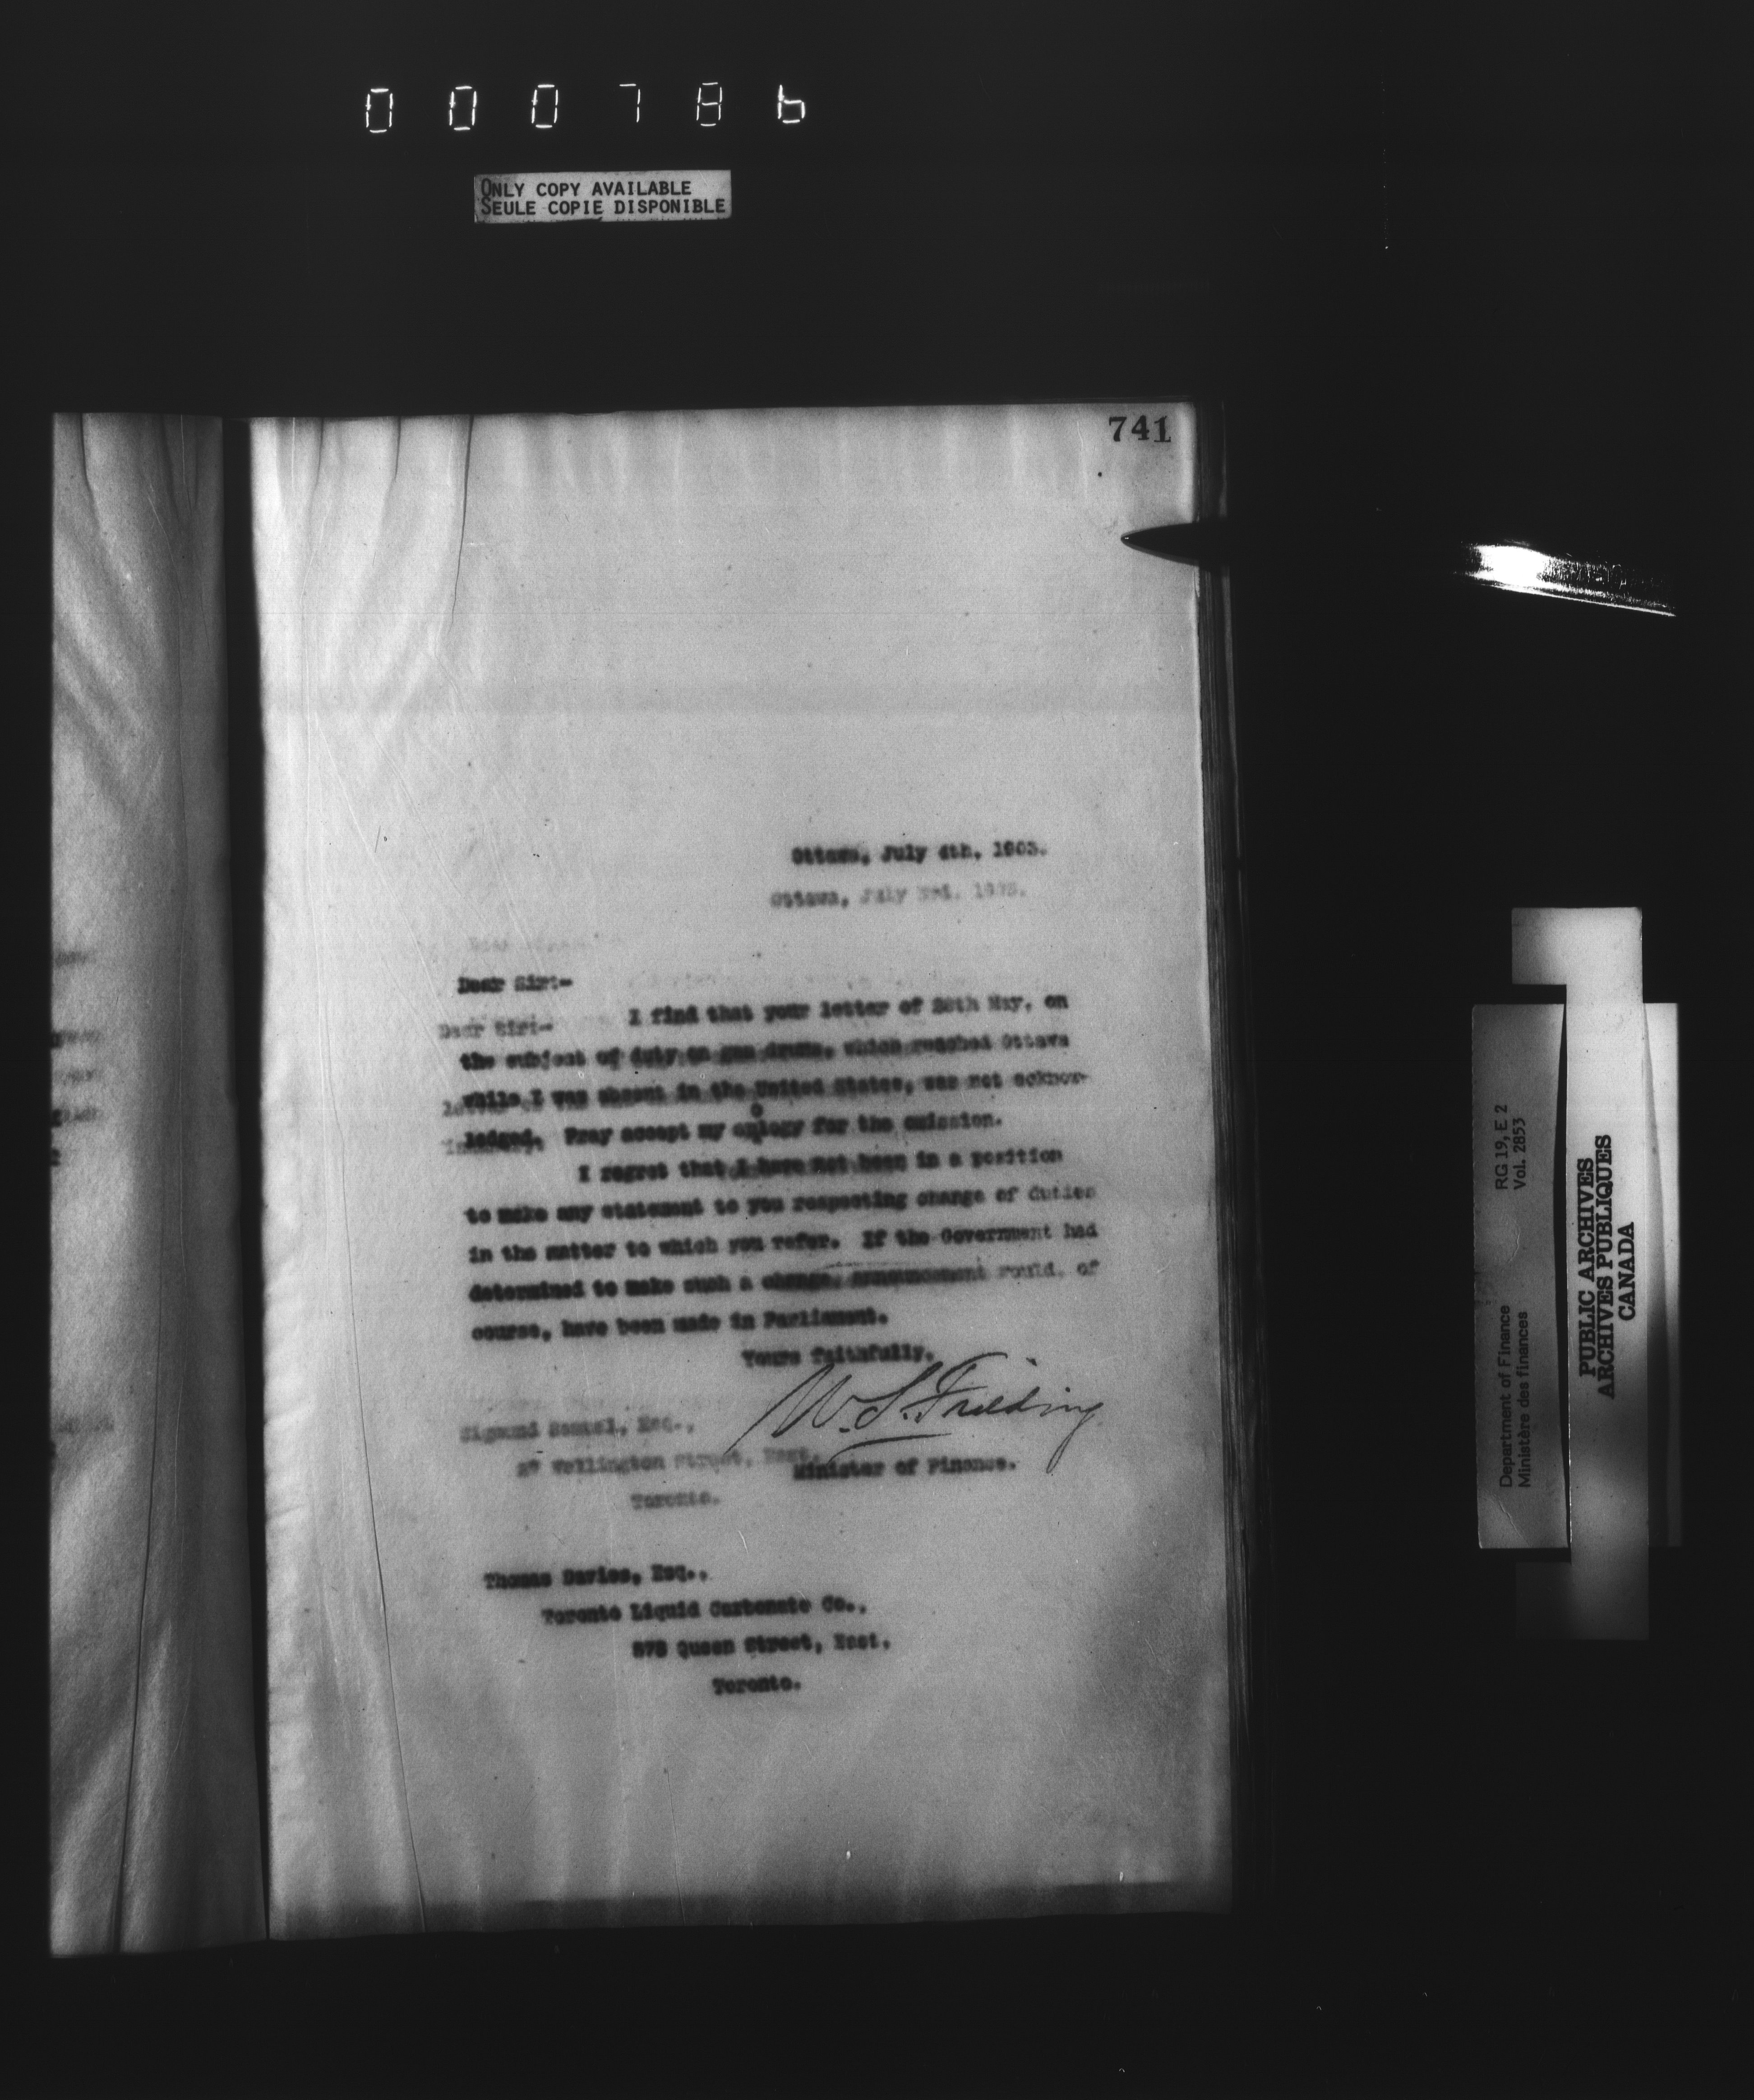 000786
ONLY COPY AVAILABLE
SEULE COPIE DISPONIBLE
741
Ottawa, July 4th, 1903.
Ottawa, July 3rd. 1903.
Dear Sir:-
Dear Sir:-
I find that your letter of May, on
the subject of duty on gas drums, which reached Ottawa
while I was absent in the United States, was not acknow-
ledged. Pray accept my apology for the omission.
I regret that I have not been in a position
to make any statement to you respecting change of duties
in the matter to which you refer. If the Government had
determined to make such a change, announcement would, of
course, have been made in Parliament.
Yours faithfully,
W. S. Fielding
Minister of Finance.
Sigmund Samuel, Esq.,
Wellington Street,
Toronto.
Thomas Davies, Esq.,
Toronto Liquid Carbonate Co.,
Queen Street, East,
Toronto.
RG 19, E 2
Vol. 2853
Department of Finance
Ministère des finances
PUBLIC ARCHIVES
ARCHIVES PUBLIQUES
CANADA